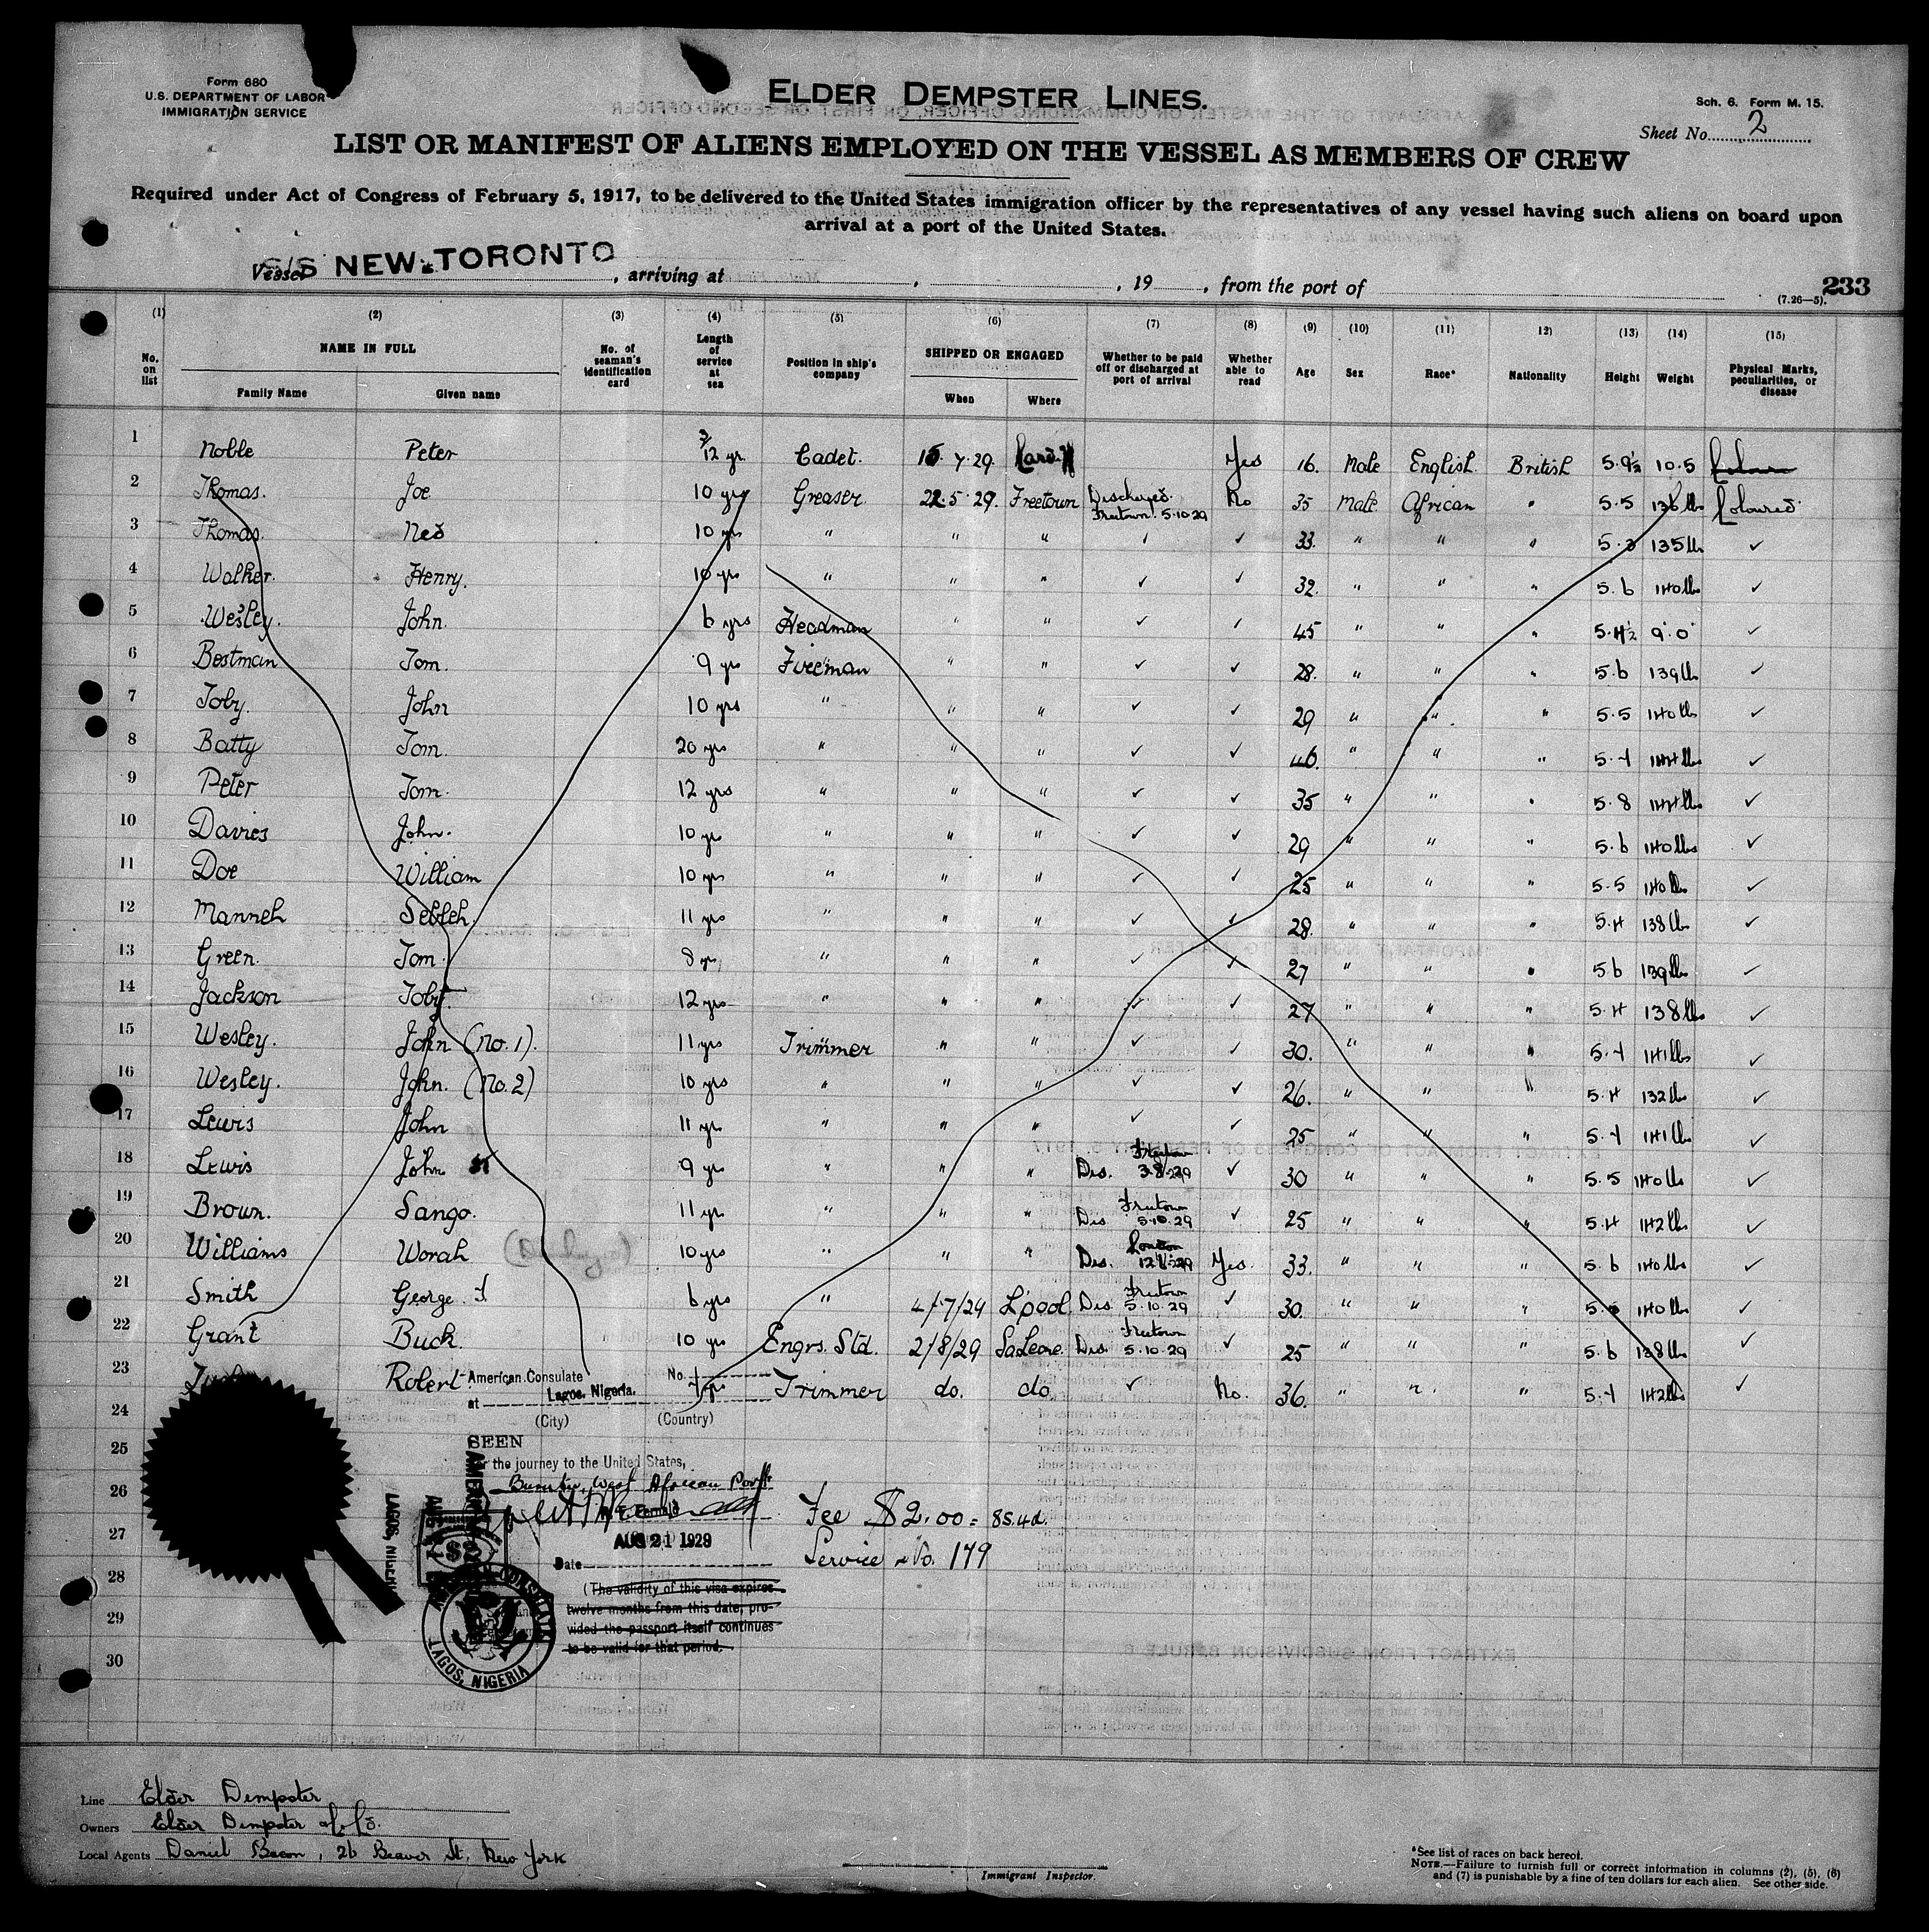 Form 680
U.S. DEPARTMENT OF LABOR
IMMIGRATION SERVICE
ELDER DEMPSTER LINES.
Sch. 6. Form M. 15.
Sheet No. 2
LIST OR MANIFEST OF ALIENS EMPLOYED ON THE VESSEL AS MEMBERS OF CREW
Required under Act of Congress of February 5, 1917, to be delivered to the United States immigration officer by the representatives of any vessel having such aliens on board upon
arrival at a port of the United States.
Vessel S/S NEW TORONTO, arriving at , , 19 , from the port of
(7.26—5). 233
(1) (2) (3) (4) (5) (6) (7) (8) (9) (10) (11) 12) (13) (14) (15)
No. on list NAME IN FULL Family Name Given name No. of seaman's identification card Length of service at sea Position in ship's company SHIPPED OR ENGAGED When Where Whether to be paid off or discharged at port of arrival Whether able to read Age Sex Race* Nationality Height Weight Physical Marks, peculiarities, or disease
1 Noble Peter 3/12 yr. Cadet. 15.7.29. Cardiff Yes 16. Male English British 5.9½ 10.5
2 Thomas. Joe 10 yrs Greaser 22.5.29. Freetown Discharged. Freetown. 5.10.29 No 35 Male African " 5.5 136 lbs Coloured.
3 Thomas. Ned 10 yrs " " " ✓ ✓ 33. " " " 5.3 135 lbs ✓
4 Walker. Henry. 10 yrs " " " ✓ ✓ 32. " " " 5.6 140 lbs ✓
5 Wesley. John. 6 yrs Headman " " ✓ ✓ 45 " " " 5.4½ 9.0 ✓
6 Bestman Tom. 9 yrs Fireman " " ✓ ✓ 28. " " " 5.6 139 lb ✓
7 Toby. John 10 yrs " " " ✓ ✓ 29 " " " 5.5 140 lbs ✓
8 Batty Tom. 20 yrs " " " ✓ ✓ 46. " " " 5.4 144 lbs ✓
9 Peter Tom. 12 yrs " " " ✓ ✓ 35 " " " 5.8 144 lbs ✓
10 Davies John. 10 yrs " " " ✓ ✓ 29 " " " 5.6 140 lbs ✓
11 Doe William 10 yrs " " " ✓ ✓ 25 " " " 5.5 140 lbs ✓
12 Manneh Sebleh. 11 yrs " " " ✓ ✓ 28. " " " 5.4 138 lbs ✓
13 Green. Tom 8 yrs " " " ✓ ✓ 27 " " " 5.6 139 lbs ✓
14 Jackson Toby. 12 yrs " " " ✓ ✓ 27 " " " 5.4 138 lbs ✓
15 Wesley. John (No. 1). 11 yrs Trimmer " " ✓ ✓ 30. " " " 5.4 141 lbs ✓
16 Wesley. John. (No. 2) 10 yrs " " " ✓ ✓ 26. " " " 5.4 132 lbs ✓
17 Lewis John 11 yrs " " " ✓ ✓ 25 " " " 5.4 141 lbs ✓
18 Lewis John 9 yrs " " " Dis. Freetown 3.8.29 ✓ 30 " " " 5.5 140 lbs ✓
19 Brown. Sango. 11 yrs " " " Dis Freetown 5.10.29 ✓ 25 " " " 5.4 142 lbs ✓
20 Williams Worah 10 yrs " " " Dis. London Yes. 33. " " " 5.6 140 lbs ✓
21 Smith George. 6 yrs " 4/7/29 L'pool. Dis. Freetown 5.10.29 ✓ 30. " " " 140 lbs ✓
22 Grant Buck. 10 yrs Engrs. Std. 2/8/29 Sa Leone. Dis. Freetown 5.10.29 ✓ 25 " " " 5.6 138 lbs ✓
23 Robert Trimmer do. do. ✓ No. 36. " " " 5.4 142 lbs ✓
24
25
26
27
28
29
30
American Consulate No.
at Lagos, Nigeria.
(City) (Country)
SEEN
For the journey to the United States,
West African Ports
AUG 21 1929
Date
(The validity of this visa expires
twelve months from this date, pro-
vided the passport itself continues
to be valid for that period.
Fee $2.00 = 8s.4d.
Service No. 179
LAGOS, NIGERIA
AMERICAN CONSULATE
LAGOS, NIGERIA
Line Elder Dempster
Owners Elder Dempster & Co.
Local Agents Daniel Bacon, 26 Beaver St. New York
Immigrant Inspector.
*See list of races on back hereof.
NOTE.—Failure to furnish full or correct information in columns (2), (5), (6)
and (7) is punishable by a fine of ten dollars for each alien. See other side.